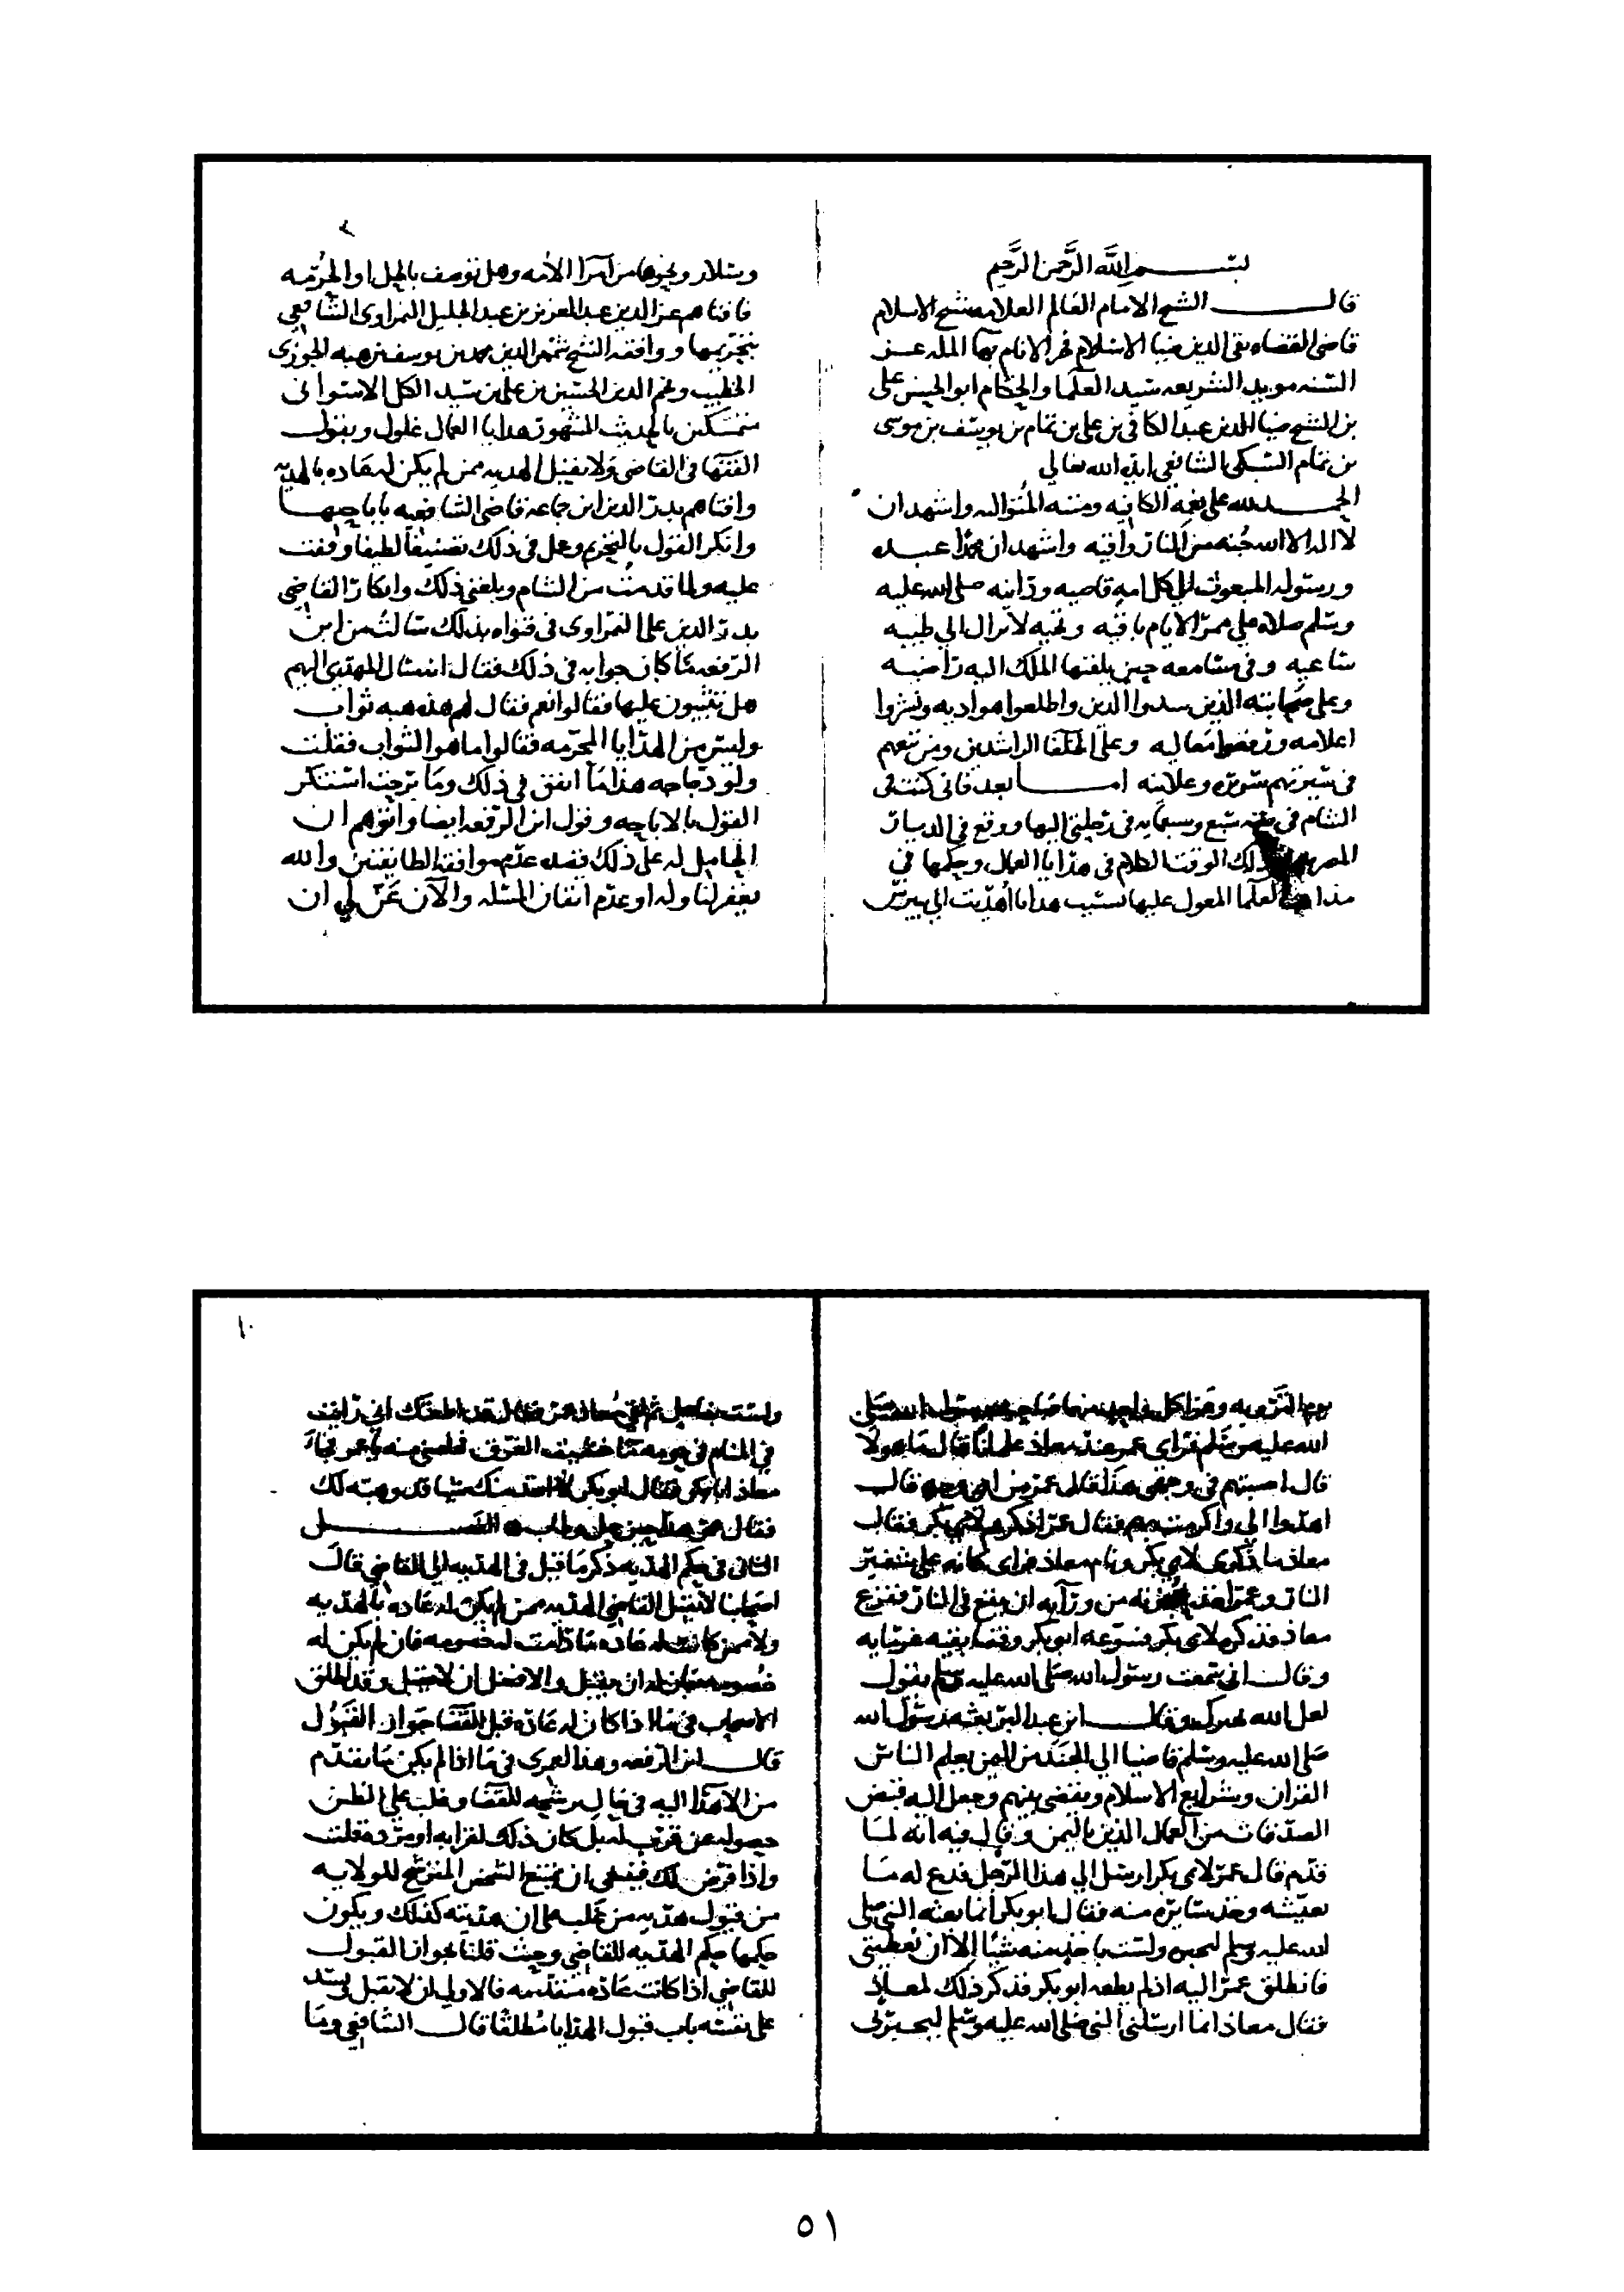 بسم الله الرَّحمن الرَّحيم
قال الشيخ الامام العالم العلامه شيخ الاسلام
قاضي القضاه تقي الدين ضيا الاسلام فخر الانام بها المله عز
السنه مويد الشريعه سيد العلما والحكام ابو الحسن على
بن الشيخ ضيا الدين عبد الكافي بن علي بن تمام بن يوسف بن موسى
بن تمام السبكي الشافعي ايده الله تعالي
الحمد لله على نعمه الكافيه ومننه المتواليه واشهد ان
لا اله الا الله جُنه من النار واقيه واشهد ان محمدا عبده
ورسوله المبعوث الي كل امه قاصيه ودانيه صلى الله عليه
وسلم صلاه علي ممر الايام باقيه وتحيه لا تزال الي طيبه
ساعيه وفي مسامعه حين يبلغها الملك اليه راضيه
وعلى صحابته الذين سدوا الدين واطلعوا هواديه ونشروا
اعلامه ورفعوا معاليه وعلى الخلفا الراشدين ومن تبعهم
في سيرتهم سره وعلانيه اما بعد فاني كنت في
الشام في سنه سبع وسبعمايه في رحلتي اليها ووقع في الديار
المصريه ذلك الوقت الكلام في هدايا العمال وحكمها في
مذاهب العلما المعول عليها بسبب هدايا أُهديت الي بيبرس
٢
وسلار ونحوهما من امرا الأمه وهل توصف بالحل او الحُرمه
فافتاهم عز الدين عبد العزيز بن عبد الجليل النمراوى الشافعي
بتحريمها ووافقه الشيخ شمس الدين محمد بن يوسف بن هبه الجزرى
الخطيب ونجم الدين الحسين بن علي بن سيد الكل الاسوانى
متمسكين بالحديث المشهور هدايا العمال غلول وبقول
الفقها في القاضي ولا يقبل الهديه ممن لم يكن له عاده بالهديه
وافتاهم بدر الدين ابن جماعه قاضي الشافعيه باباحتها
وانكر القول بالتحريم وعمل في ذلك تصنيفاً لطيفا وقفت
عليه ولما قدمت من الشام وبلغني ذلك وانكار القاضي
بدر الدين على النمراوى في فتواه بذلك سالت من ابن
الرفعه ما كان جوابه في ذلك فقال انسال المهدي اليهم
هل يثيبون عليها فقالوا نعم فقال لهم هذه هبه ثواب
وليس من الهدايا المحرمه فقالوا ما هو الثواب فقلت
ولو دجاجه هذا ما اتفق في ذلك وما برحت استنكر
القول بالاباحه وقول ابن الرفعه ايضا واتوهم ان
الحامل له على ذلك قصد عدم موافقه الطايفتين والله
يغفر لنا وله او عدم اتقان المسله والآن عَنّ لي ان
يوم الترويه
الله عليه وسلم فراى عمر عند معاذ غلمانا فقال ما هولا
قال اصبتهم في وجهي هذا فقال عمر من اي وجه قال
اهدوا الي واكرمت بهم فقال عمر اذكرهم لابي بكر فقال
معاذ ما ذكرى لابي بكر ونام معاذ فراى كانه على شفير
النار وعمر اخذ بحجزته من ورآيه ان يقع في النار ففزع
معاذ فذكرهم لابي بكر فسوغه ابو بكر وقضا بقيه غرمايه
وقال اني سمعت رسول الله صلى الله عليه وسلم يقول
لعل الله يجبرك وقال ابن عبد البر بعثه رسول الله
صلى الله عليه وسلم قاضيا الي الجند من اليمن يعلم الناس
القران وشرايع الاسلام ويقضي بينهم وجعل اليه قبض
الصدقات من العمال الذين باليمن وقال فيه انه لما
قدم قال عمر لابي بكر ارسل الي هذا الرجل فدع له ما
يعيشه وخذ سايره منه فقال ابو بكر انما بعثه النبي صلى
الله عليه وسلم ليجبره ولست باخذ منه شيئا الا ان يعطيني
فانطلق عمر اليه اذ لم يطعه ابو بكر فذكر ذلك لمعاذ
فقال معاذ انما ارسلني النبي صلى الله عليه وسلم ليجبرني
١٠
ولست بفاعل ثم لقي معاذ عمر فقال قد اطعتك اني رايت
في المنام في حومه ما خشيت الغرق فخلصتني منه يا عمر فجاء
معاذ ابا بكر فقال ابو بكر لا اخذ منك شيا قد وهبته لك
فقال عمر هذا حين حل وطاب الفصل
الثاني في حكم الهديه ذكر ما قيل في الهديه الي القاضي قال
اصحابنا لا يقبل القاضي الهديه ممن لم يكن له عاده بالهديه
ولا ممن كانت له عاده ما دامت له خصومه فان لم يكن له
خصومه جاز له ان يقبل والافضل ان لا يقبل وقد اطلق
الاصحاب في ما اذا كان له عاده قبل القضا جواز القبول
قال ابن الرفعه وهذا لعمرى في ما اذا لم يكن ما تقدم
من الاهدا اليه في حال ترشحه للقضا وغلب علي الظن
حصوله عن قرب له بل كان ذلك لقرابه او مودة قلت
واذا فرض ذلك فينبغي ان يمتنع الشخص المترشح للولايه
من قبول هديه من غلب على ان هديته كذلك ويكون
حكمها حكم الهديه للقاضي وحيث قلنا بجواز القبول
للقاضي اذا كانت عاده متقدمه فالاولى ان لا يقبل ليسد
على نفسه باب قبول الهدايا مُطلقا قال الشافعي وما
٥١